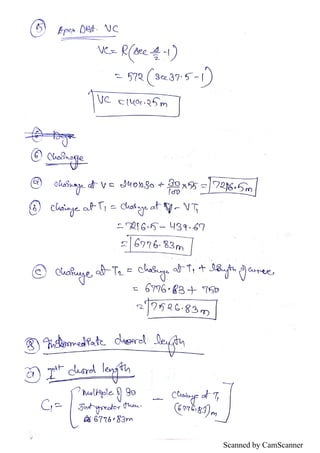 ⑤ Apex Dist. VC
VC = R(sec Δ/2 -1)
= 572 (sec 37.5 -1)
VC = 149.25m
⑥ Chainage
ⓐ chainage at V = 240x30 + 30/100 x55 = 7216.5m
ⓑ chainage at T1 = chainage at V - VT1
= 7216.5 - 439.67
= 6776.83m
ⓒ chainage at T2 = chainage at T1 + length of curve
= 6776.83 + 750
= 7526.83m
⑧ Intermediate chord length
ⓐ Ist chord length
C1 = [Multiple of 30 just greater than 6776.83m - chainage of T1 (6776.83)m]
Scanned by CamScanner